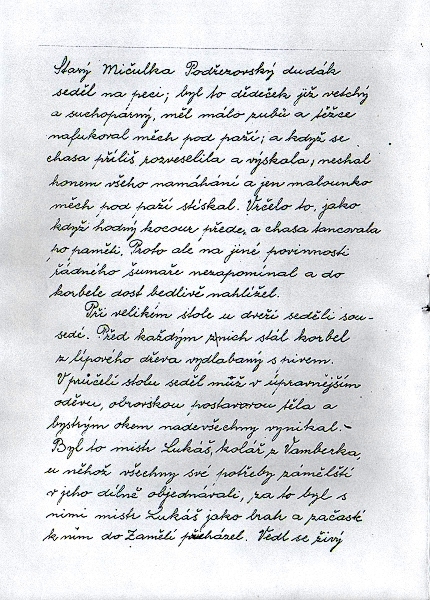 Starý Mičulka Podřezovský dudák
seděl na peci; byl to dědeček již vetchý
a suchopárný, měl málo zubů a těžce
nafukoval měch pod paží; a když se
chasa příliš rozveselila a výskala, nechal
honem všeho namáhání a jen malounko
měch pod paží stiskal. Vrčelo to, jako
když hodný kocour přede, a chasa tancovala
po paměti. Proto ale na jiné povinnosti
řádného šumaře nezapomínal a do
korbele dost bedlivě nahlížel.
Při velikém stole u dveří seděli sou-
sedé. Před každým z nich stál korbel
z lipového dřeva vydlabaný s pivem.
V průčelí stolu seděl muž v úpravnějším
oděvu, obrovskou postavou těla a
bystrým okem nade všechny vynikal.-
Byl to mistr Lukáš, kolář z Vamberka,
u něhož všechny své potřeby zámělští
v jeho dílně objednávali, za to byl s
nimi mistr Lukáš jako brah a začasté
k nim do Zámělí přicházel. Vedl se živý